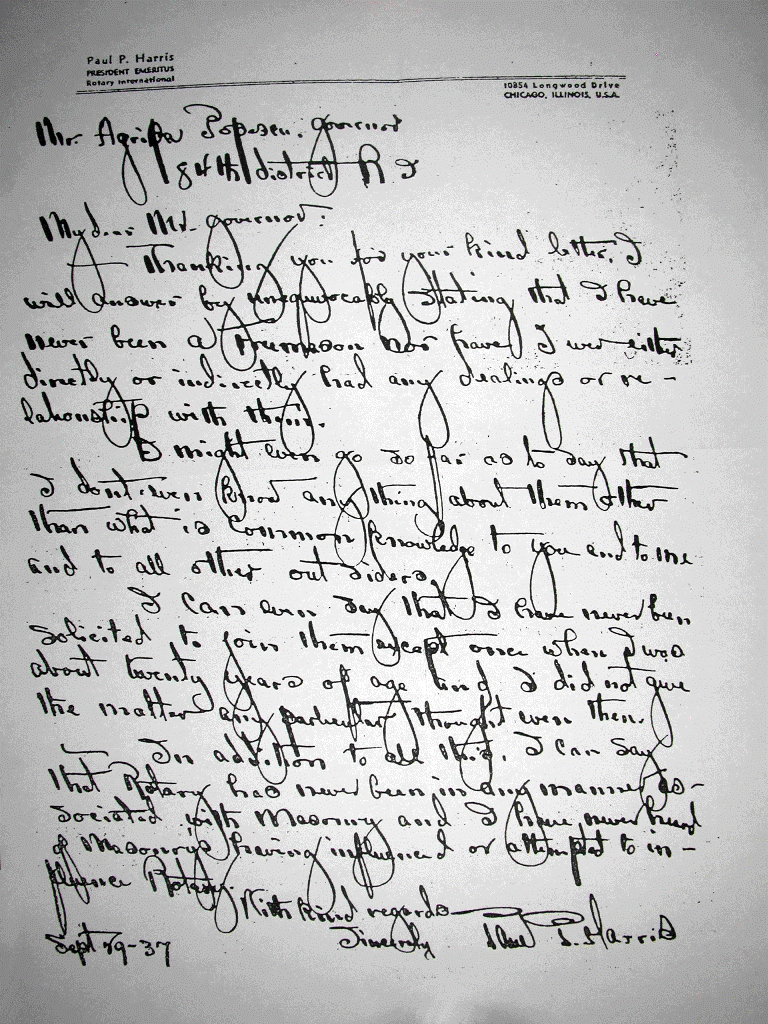 Paul P. Harris
PRESIDENT EMERITUS
Rotary International
10854 Longwood Drive
CHICAGO, ILLINOIS, U.S.A.
Mr. Agripa Popescu. governor
84th district R I
My dear Mr. governor:
Thanking you for your kind letter, I
will answer by unequivocably stating that I have
never been a Freemason nor have I ever either
directly or indirectly had any dealings or re-
lationship with them.
I might even go so far as to say that
I dont even know any thing about them other
than what is common knowledge to you and to me
and to all other out siders.
I can even say that I have never been
solicited to join them except once when I was
about twenty years of age and I did not give
the matter any particular thought even then.
In addition to all this, I can say
that Rotary has never been in any manner as-
sociated with Masonry and I have never heard
of Masonry's having influenced or attempted to in-
fluence Rotary.
With kind regards
Sincerely Paul P. Harris
Sept 29-37